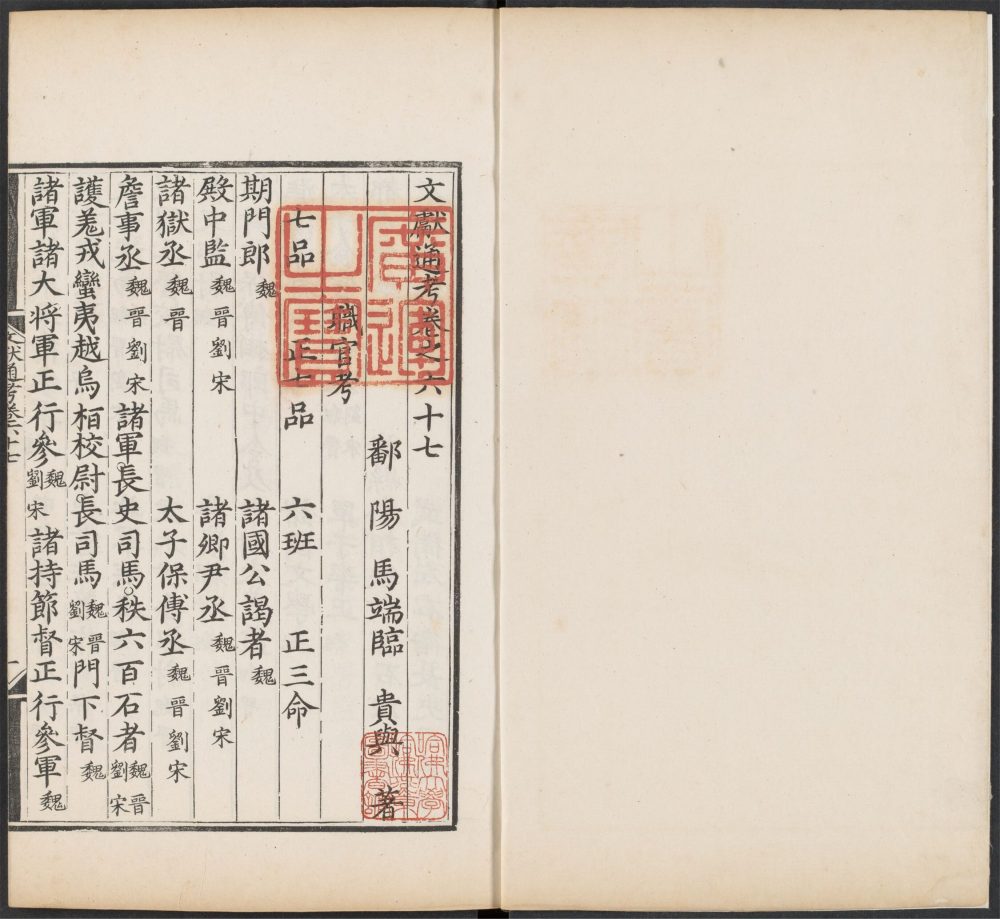 文獻通考卷之六十七
鄱陽馬端臨貴與著
職官考
七品 正七品 六班 正三命
期門郎魏 諸國公謁者魏
殿中監魏晉劉宋 諸卿尹丞魏晉劉宋
諸獄丞魏晉 太子保傅丞魏晉劉宋
詹事丞魏晉劉宋諸軍長史司馬秩六百石者魏晉劉宋
護羗戎蠻夷越烏桓校尉長司馬魏晉劉宋門下督魏
諸軍諸大将軍正行參魏劉宋諸持節督正行參軍魏
文獻通考卷六十七